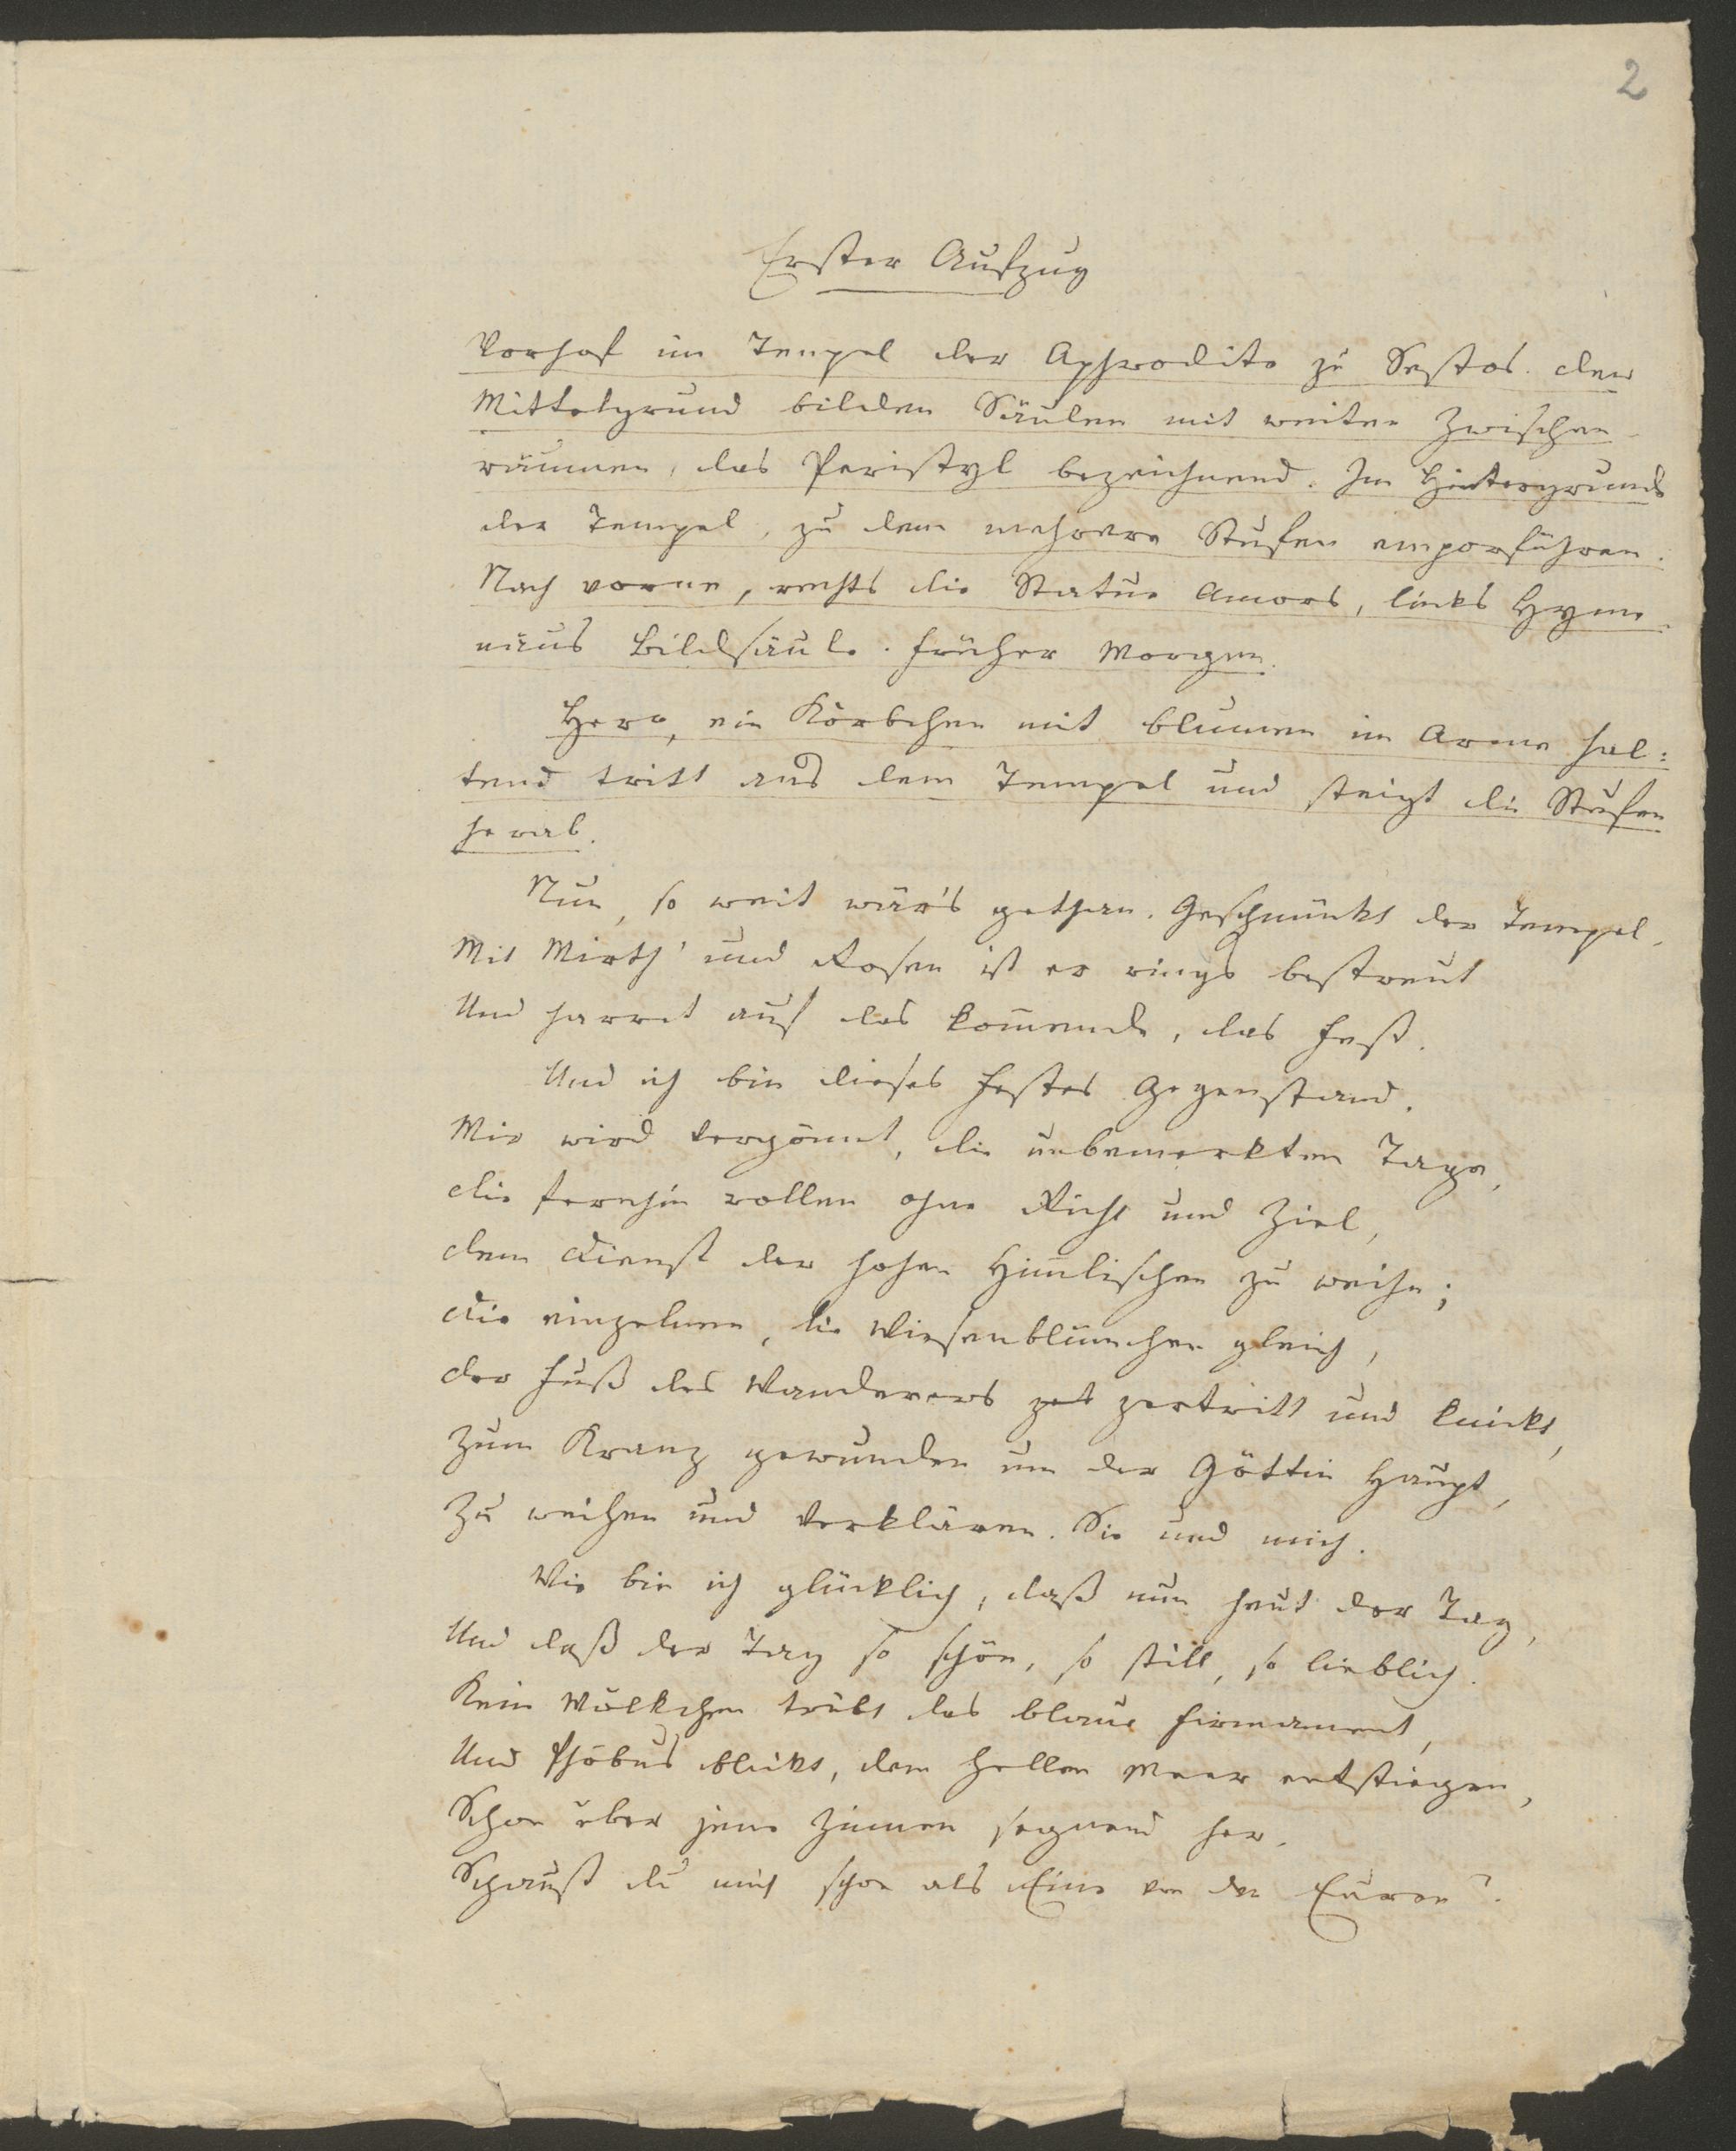 2
Erster Aufzug
Vorhof im Tempel der Aphrodite zu Sestos. den
Mittelgrund bilden Säulen mit weiten Zwischen-
räumen, das Peristyl bezeichnend. Im Hintergrunde
der Tempel, zu dem mehrere Stufen emporführen.
Nach vorne, rechts die Statue Amors, links Hyme-
näus Bildsäule. Früher Morgen.
Hero, ein Körbchen mit Blumen im Arme hal:
tend tritt aus dem Tempel und steigt die Stufen
herab.
Nun, so weit wär's gethan. Geschmückt der Tempel,
Mit Mirth' und Rosen ist er rings bestreut
Und harret auf das kom̄ende, das Fest.
Und ich bin dieses Festes Gegenstand.
Mir wird vergönnt, die unbemerkten Tage,
die fernhin rollen ohne Richt und Ziel,
dem Dienst der hohen Him̄lischen zu weihn;
die einzelnen, die Wiesenblümchen gleich,
der Fuß des Wanderers zet zertritt und knickt,
Zum Kranz gewunden um der Göttin Haupt,
Zu weihen und verklären. Sie und mich.
Wie bin ich glücklich, daß nun heut der Tag,
Und daß der Tag so schön, so still, so lieblich.
Kein Wölkchen trübt das blaue Firmament,
Und Phöbus blickt, dem hellen Meer entstiegen,
Schon über jene Zinnen segnend her.
Schaust du mich schon als Eine von den Euren?